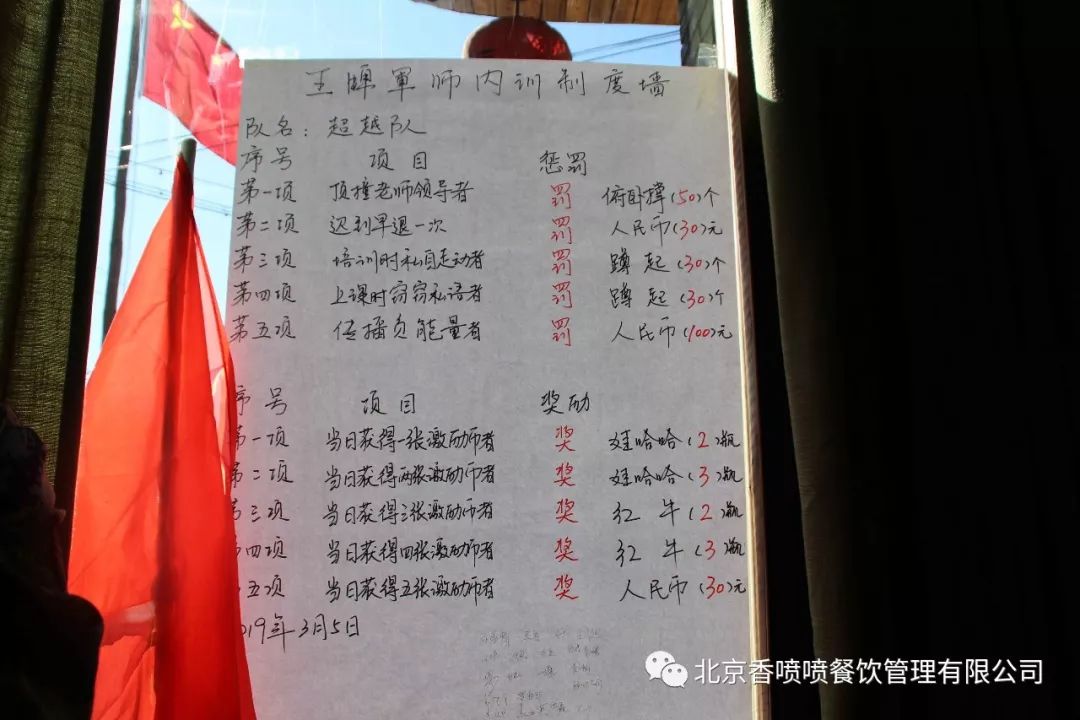 王牌軍师内训制度墙
队名：超越队
序号 项目 惩罚
第一项 顶撞老师领导者 罚 俯卧撑(50)个
第二项 迟到早退一次 罚 人民币(30)元
第三项 培训时私自走动者 罚 蹲起(30)个
第四项 上课时窃窃私语者 罚 蹲起(30)个
第五项 传播负能量者 罚 人民币(100)元
序号 项目 奖励
第一项 当日获得一张激励师者 奖 娃哈哈(2)瓶
第二项 当日获得两张激励师者 奖 娃哈哈(3)瓶
第三项 当日获得三张激励师者 奖 红牛(2)瓶
第四项 当日获得四张激励师者 奖 红牛(3)瓶
五项 当日获得五张激励师者 奖 人民币(30)元
2019年3月5日
北京香喷喷餐饮管理有限公司